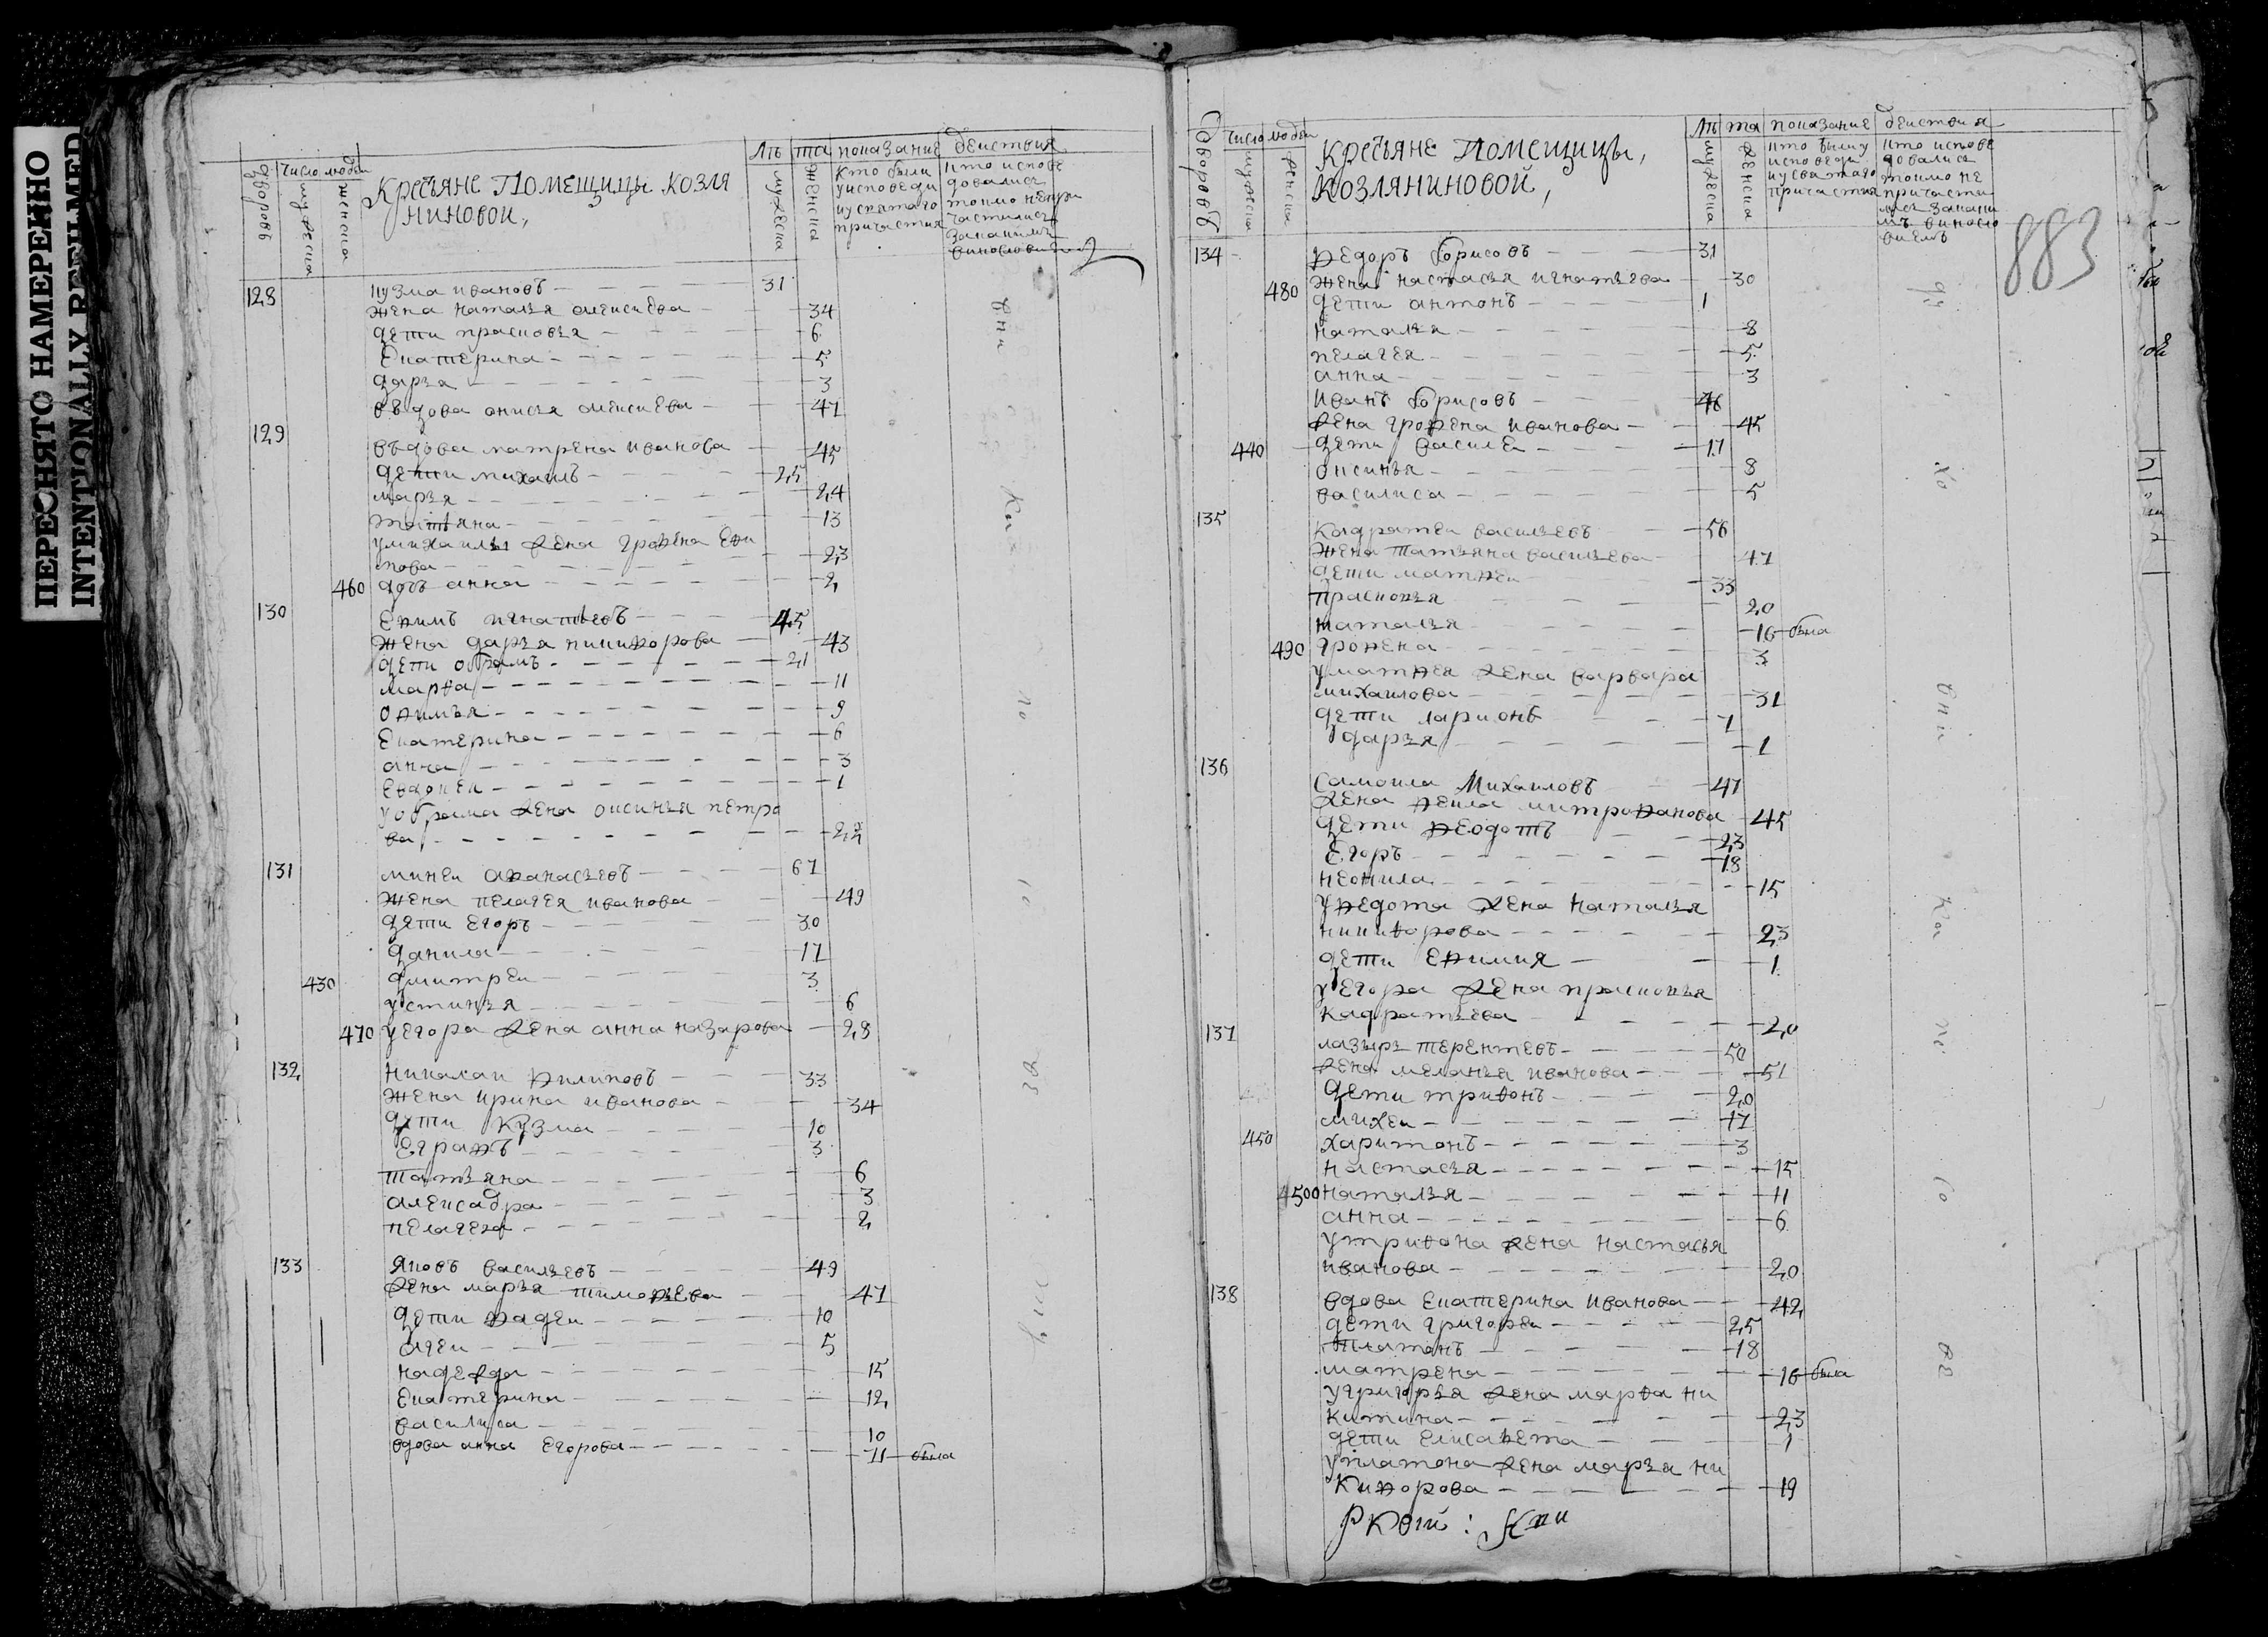 ПЕРЕСНЯТО НАМЕРЕННО
INTENTIONALLY REFILMED
Лѣ та показание действия
дворовъ
число людей
мужеска
женска
Крестяне Помещицы козля
ниновой,
мужеска
женска
кто были
у исповеди
и у святаго
причастия
кто испове
довалис
токмо непри
частилис
за каким
винословием
128 кузма ивановъ 31
жена наталья алексеева 34
дети прасковья 6
Екатерина 5
дарья 3
въдова анисья алексиева 47
129
въдова матрена иванова 45
дети михаилъ 25
марья 24
татьяна 13
у михаилы жена графена Еѳи
мова 23
460 дочь анна 2
130 Еѳимъ игнатьевъ 45
жена дарья никиѳорова 43
дети обрамъ 21
марѳа 11
оѳимья 9
Екатерина 6
анна 3
Евдокея 1
у обрама жена оксинья петро
ва 22
131 миней аѳанасьевъ 67
жена пелагея иванова 49
дети Егоръ 30
данила 17
430 дмитрей 3
устинья 6
470 у егора жена анна назарова 28
132 николай ѳилиповъ 33
жена ирина иванова 34
дети кузма 10
Еграѳъ 3
татьяна 6
алексадра 3
пелагея 2
133 яковъ васильевъ 49
жена марья тимоѳеева 47
дети ѳадеи 10
агеи 5
надежда 15
Екатерина 12
василиса 10
вдова анна Егорова 71 была
дворовъ
число людей
мужеска
женска
Крестьяне Помещицы,
Козляниновой,
Лѣ та показание действия
мужеска
женска
кто были у
исповеди
и у святаго
причастия
кто испове
довалис
токмо не
причасти
лис за каки
мъ виносло
виемъ
883
134 ѳедоръ борисовъ 31
480 жена настасья игнатьева 30
дети антонъ 1
наталья 8
пелагея 5
анна 3
иванъ борисовъ 46
жена графена иванова 45
440 дети василеи 17
оксинья 8
василиса 5
135
Кадратеи васильевъ 56
жена татьяна васильева 47
дети матѳеи 33
прасковья 20
наталья 16 была
490 грофена 3
у матѳея жена варвара
михаилова 31
дети ларионъ 7
дарья 1
136
самоила Михаиловъ 47
жена ѳекла митроѳанова 45
дети ѳеодотъ 23
Егоръ 18
неонила 15
у ѳедота жена наталья
никиѳорова 23
дети Еѳимия 1
у Егора жена прасковья
кадратьева 20
137
лазырь терентевъ 50
жена меланья иванова 51
дети триѳонъ 20
михеи 17
450 харитонъ 3
настасья 15
4500 наталья 11
анна 6
у триѳона жена настасья
иванова 20
138
вдова Екатерина Иванова 42
дети григореи 25
платонъ 18
матрена 16 была
у григорья жена марѳа ни
китина 23
дети елисавета 1
у платона жена марья ни
киѳорова 19